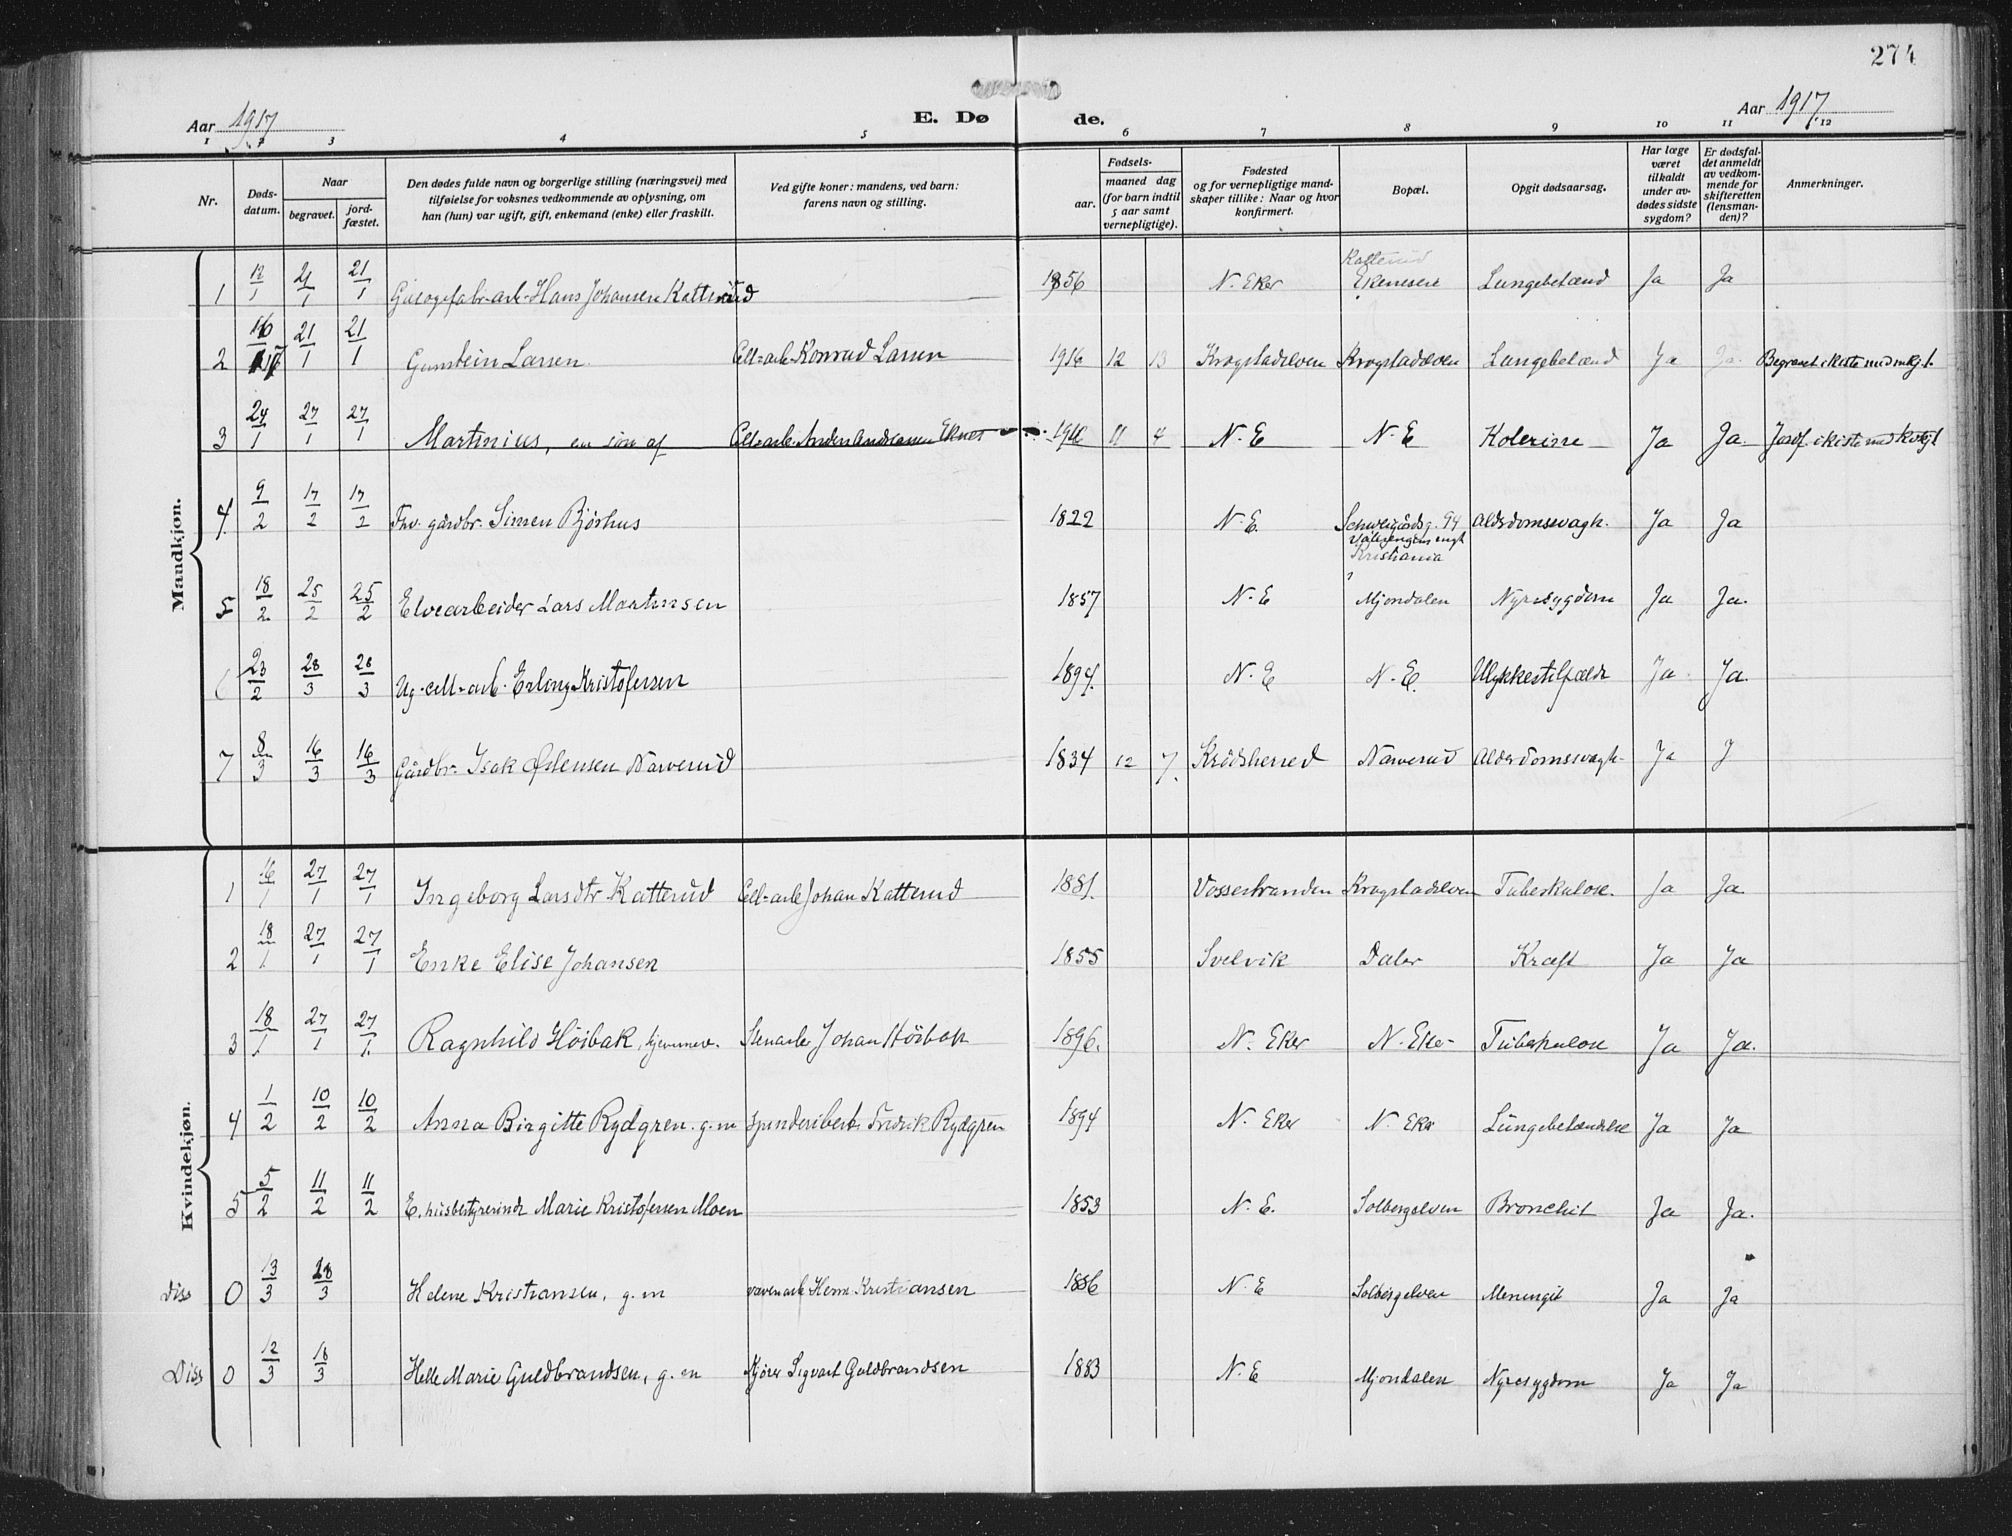 274
Aar 1917
E. Dø de.
Aar 1917
1 2 3 4 5 6 7 8 9 10 11 12
Nr.
Døds-
datum.
Naar
begravet.
jord-
fæstet.
Den dødes fulde navn og borgerlige stilling (næringsvei) med
tilføielse for voksnes vedkommende av oplysning, om
han (hun) var ugift, gift, enkemand (enke) eller fraskilt.
Ved gifte koner: mandens, ved barn:
farens navn og stilling.
Fødsels-
aar.
maaned dag
(for barn indtil
5 aar samt
vernepligtige).
Fødested
og for vernepligtige mand-
skaper tillike: Naar og hvor
konfirmert.
Bopæl.
Opgit dødsaarsag.
Har læge
været
tilkaldt
under av-
dødes sidste
sygdom?
Er dødsfal-
det anmeldt
av vedkom-
mende for
skifteretten
(lensman-
den)?
Anmerkninger.
Mandkjøn.
1 12/1 21/1 21/1 Hans Johansen Katterud 1856 N. Eker Katterud Ekenesene Lungebetænd Ja Ja
2 16/1 17 21/1 21/1 Gunstein Larsen Cell-arb. Konrad Larsen 1916 12 13 Krogstadelven Krogstadelven Lungebetænd Ja Ja. Begravet i kiste med
3 24/1 27/1 27/1 Martinius, en søn af Cell-arb. Anders Andersen Eknes 11 4 N. E N. E Kolerine Ja Ja. Jordf. i kiste med
4. 9/2 17/2 17/2 Fhv. gårdbr. Simen Bjørhus 1822 N. E. Schweigårdsg. 94
Kristiania Aldrdomssvagh. Ja Ja
5 18/2 25/2 25/2 Elvearbeider Lars Martinsen 1857 N. E Mjøndalen Nyresygdom Ja Ja.
6 23/2 28/3 28/3 Ug. cell-arb. Erling Kristofersen 1894. N. E N. E. Ulykkestilfælde Ja Ja.
7 8/3 16/3 16/3 Gårdbr. Isak Østensen Narverud 1834 12 7. Krødsherred Narverud Alderdomssvagh. Ja J
Kvindekjøn.
1 16/1 27/1 27/1 Ingeborg Larsdtr Katterud Cell-arb Johan Katterud 1881. Vossestranden Krogstadelven Tuberkulose. Ja Ja
2 18/1 27/1 27/1 Enke Elise Johansen 1855 Svelvik Daler Kræft Ja Ja
3 18/1 27/1 27/1 Ragnhild Høibak, hjemmev. Stenarb. Johan Høibak 1896. N. Eker N. Eker Tuberkulose Ja Ja.
4 1/2 10/2 10/2 Anna Birgitte Rydgren. g. m Fredrik Rydgren 1894 N. Eker N. Eker Lungebetændelse Ja Ja
5 5/2 11/2 11/2 E. husbestyrerinde Marie Kristofersen Moen 1853 N. E. Solbergelven Bronchit Ja Ja.
Diss 0 13/3 18/3 Helene Kristiansen, g. m Herm. Kristiansen 1886 N. E Solbergelven Meningit Ja Ja
Diss 0 12/3 18/3 Helle Marie Guldbrandsen, g. m Kjører Sigvart Guldbrandsen 1883 N. E Mjøndalen Nyresygdom Ja Ja